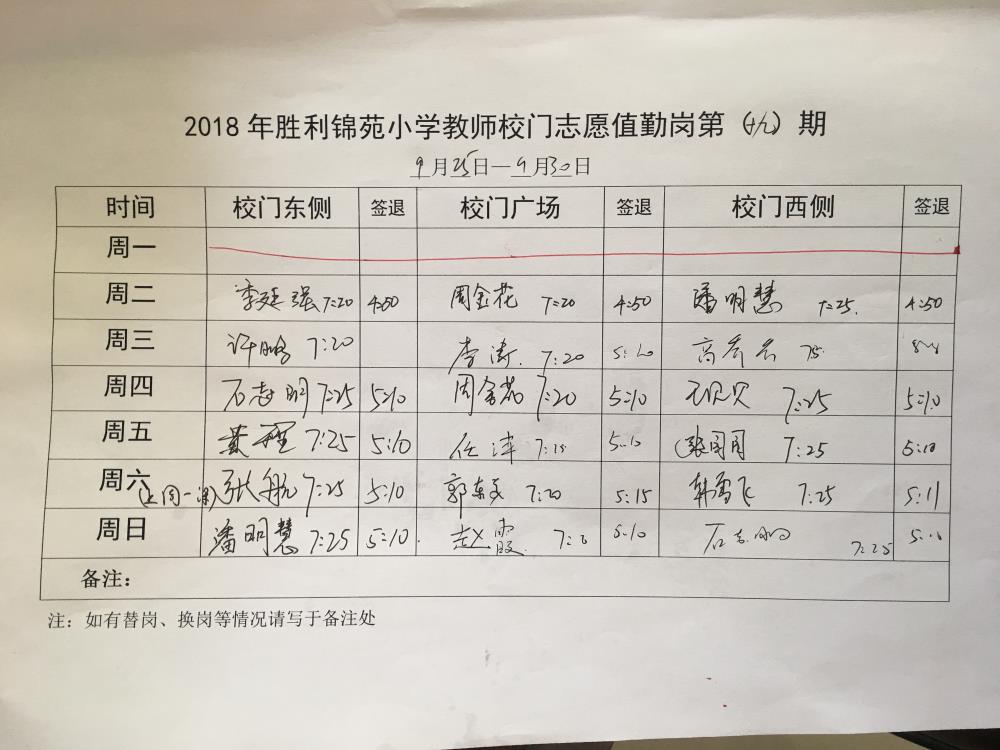 2018年胜利锦苑小学教师校门志愿值勤岗第（十九）期
9月25日—9月30日
时间 校门东侧 签退 校门广场 签退 校门西侧 签退
周一
周二 李延强 7:20 4:50 周金花 7:20 4:50 潘明慧 7:25. 4:50
周三 许鹏 7:20 李涛. 7:20 5:10
周四 石志明 7:25 5:10 周金花 7:20 5:10 7:25 5:10
周五 7:25 5:10 任洋 5:10 张团团 7:25 5:10
周六(上周一课) 张航 7:25 5:10 郭 7:20 5:15 韩雪飞 7:25 5:11
周日 潘明慧 7:25 5:10. 赵霞 5:10 石志明 7:25
备注：
注：如有替岗、换岗等情况请写于备注处